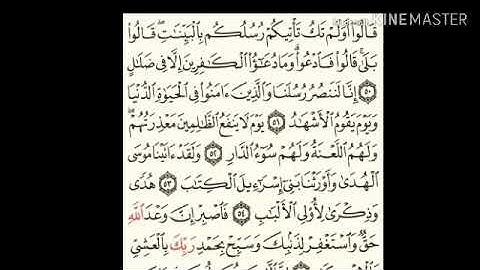 KINEMASTER
قَالُوٓا۟ أَوَلَمْ تَكُ تَأْتِيكُمْ رُسُلُكُم بِٱلْبَيِّنَٰتِ ۖ قَالُوا۟
بَلَىٰ ۚ قَالُوا۟ فَٱدْعُوا۟ ۗ وَمَا دُعَٰٓؤُا۟ ٱلْكَٰفِرِينَ إِلَّا فِى ضَلَٰلٍ
٥٠ إِنَّا لَنَنصُرُ رُسُلَنَا وَٱلَّذِينَ ءَامَنُوا۟ فِى ٱلْحَيَوٰةِ ٱلدُّنْيَا
وَيَوْمَ يَقُومُ ٱلْأَشْهَٰدُ ٥١ يَوْمَ لَا يَنفَعُ ٱلظَّٰلِمِينَ مَعْذِرَتُهُمْ ۖ
وَلَهُمُ ٱللَّعْنَةُ وَلَهُمْ سُوٓءُ ٱلدَّارِ ٥٢ وَلَقَدْ ءَاتَيْنَا مُوسَى
ٱلْهُدَىٰ وَأَوْرَثْنَا بَنِىٓ إِسْرَٰٓءِيلَ ٱلْكِتَٰبَ ٥٣ هُدًى
وَذِكْرَىٰ لِأُو۟لِى ٱلْأَلْبَٰبِ ٥٤ فَٱصْبِرْ إِنَّ وَعْدَ ٱللَّهِ
حَقٌّ وَٱسْتَغْفِرْ لِذَنۢبِكَ وَسَبِّحْ بِحَمْدِ رَبِّكَ بِٱلْعَشِىِّ